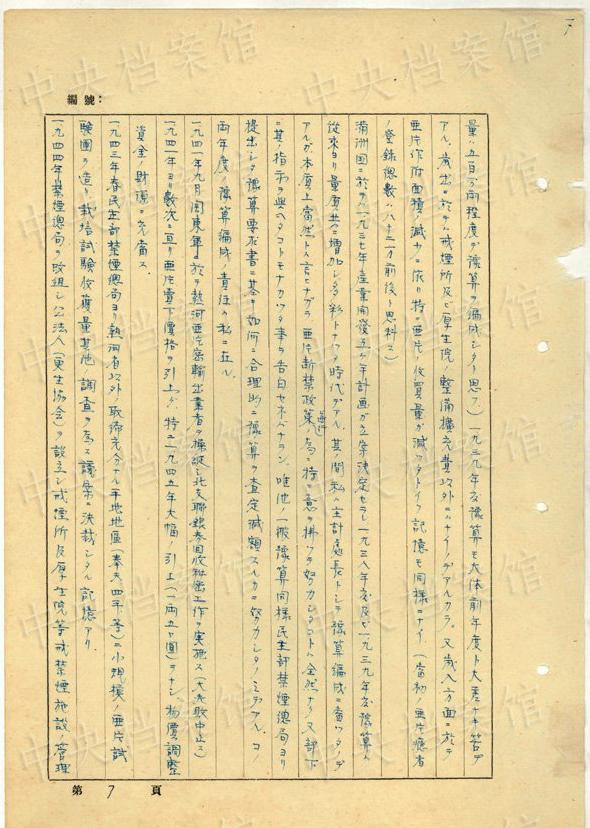 編號：
量ハ五百万両程度デ豫算ヲ編成シタト思フ）一九三九年度豫算モ大体前年度ト大差ナキ筈デ
アル。歳出ニ於テハ戒煙所及ビ厚生院ノ整備擴充費以外ニハナイノデアルカラ。又歳入方面ニ於テ
亜片作付面積ノ減少ニ依リ特ニ亜片ノ收買量ガ減ツタトイフ記憶モ同様ニナイ（當初ノ亜片癮者
ノ登録總数ハ八十二万前後ト思料ス）
満洲国ニ於テハ一九三七年産業開發五ヶ年計画ガ立案決定セラレ一九三八年度及ビ一九三九年度豫算ハ
從來ヨリ量質共ニ増加シ多彩トナツタ時代デアル 其間私ハ主計處長トシテ豫算編成ニ當ツタノデ
アルガ本質上當然トハ言ヒナガラ亜片断禁政策遂行ノ為ニ特ニ意ヲ拂ツテ努力シタコトハ全然ナク又部下
ニ其指示ヲ與ヘタコトモナカツタ事ヲ告白セネバナラン。唯他ノ一般豫算同様民生部禁煙總局ヨリ
提出シタ豫算要求書ニ基キ如何ニ合理的ニ豫算ヲ査定減額スルカニ努力シタノミデアル。コノ
両年度ノ豫算編成ノ責任ハ私ニ在ル。
一九四一年九月関東軍ニ於テ熱河亜片密輸出業者ヲ操縦シ北支聯銀券回收秘密工作ヲ実施ス（大失敗中止ス）
一九四一年ヨリ数次ニ亘リ亜片賣下價格ヲ引上ゲ、特ニ一九四五年大幅ノ引上（一両五〇圓）ヲナシ、物價調整
資金ノ財源ニ充當ス。
一九四三年春民生部禁煙總局ヨリ熱河省以外ノ取締充分ナル平地地區（奉天四平等）ニ小規模ノ亜片試
験圃ヲ造リ栽培試驗收獲量其他ノ調査ヲ為ス議案ニ決裁シタル記憶アリ
一九四四年禁煙總局ヲ改組シ公法人（更生協会）ヲ設立シ戒煙所及厚生院等戒禁煙施設ノ管理
第 7 頁
中央档案馆